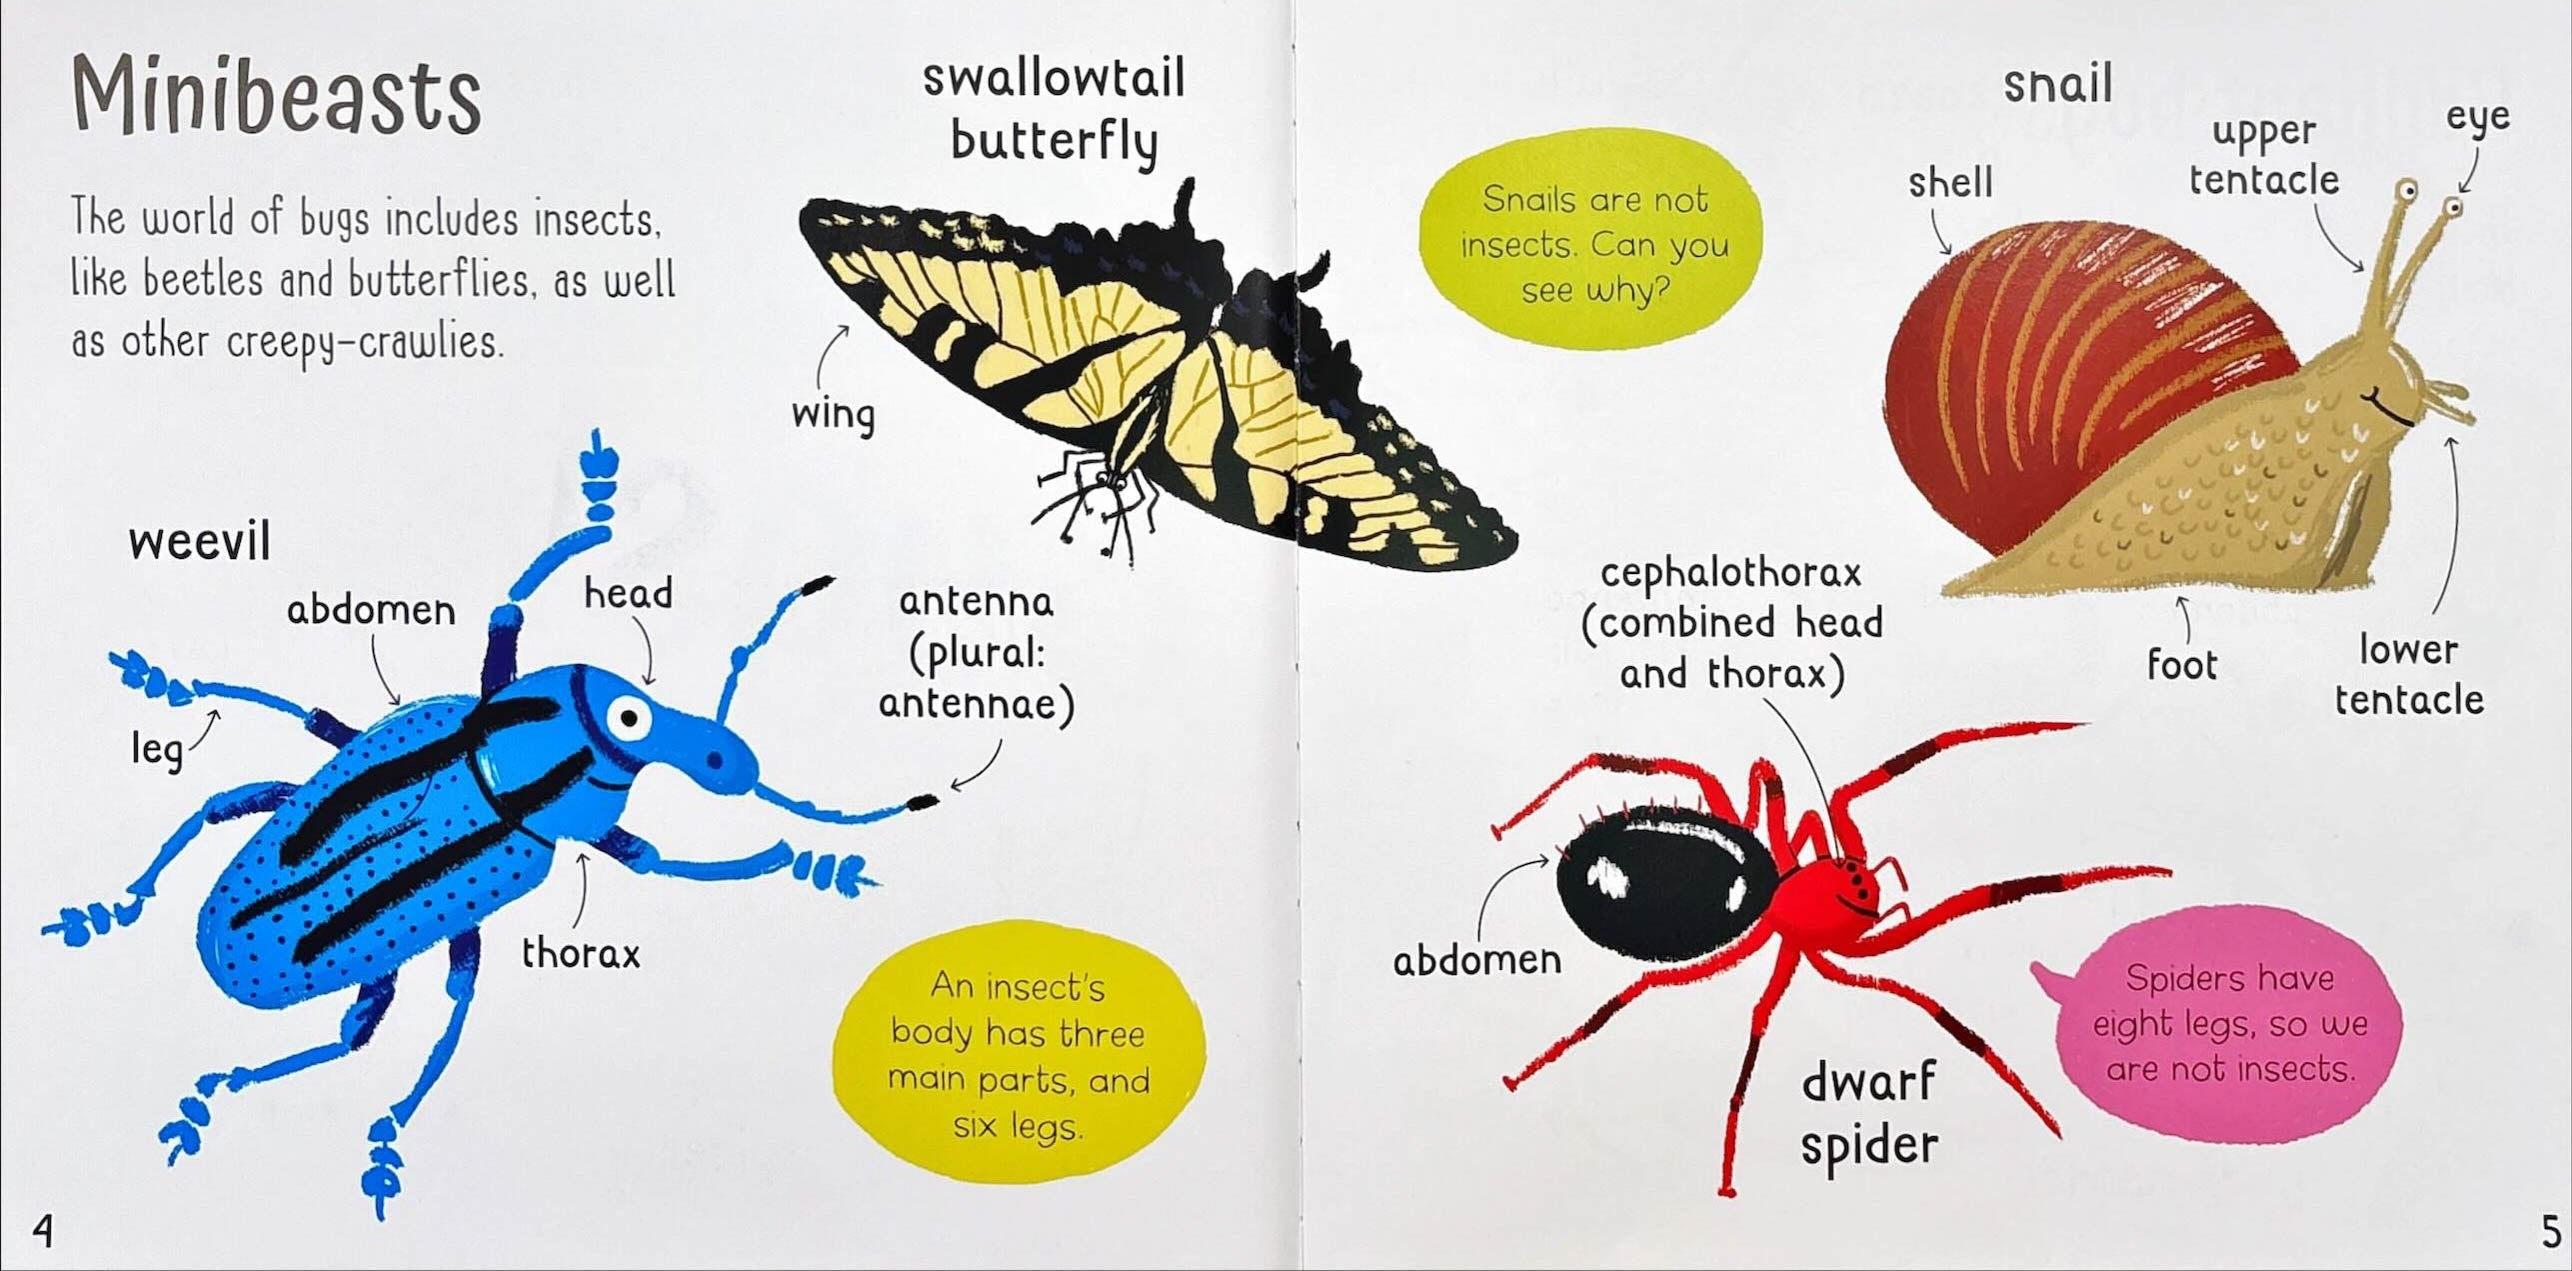 Minibeasts
The world of bugs includes insects,
like beetles and butterflies, as well
as other creepy-crawlies.
swallowtail
butterfly
wing
weevil
abdomen
head
antenna
(plural:
antennae)
leg
thorax
An insect's
body has three
main parts, and
six legs.
4
Snails are not
insects. Can you
see why?
snail
shell
upper
tentacle
eye
foot
lower
tentacle
cephalothorax
(combined head
and thorax)
abdomen
dwarf
spider
Spiders have
eight legs, so we
are not insects.
5